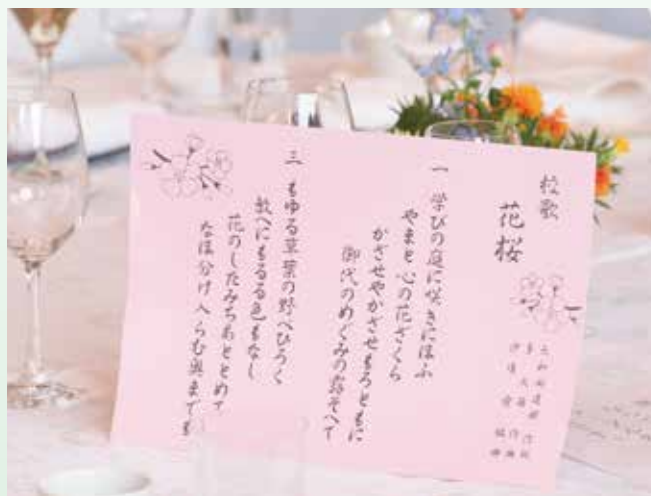 校歌
花桜
一 学びの庭に咲きにほふ
やまと心の花ざくら
かざせやかざせもろともに
御代のめぐみの露そへて
三 もゆる草葉の野べひろく
数へにもるる色もなし
花のしたみちあととめて
なほ分け入らむ奥までも